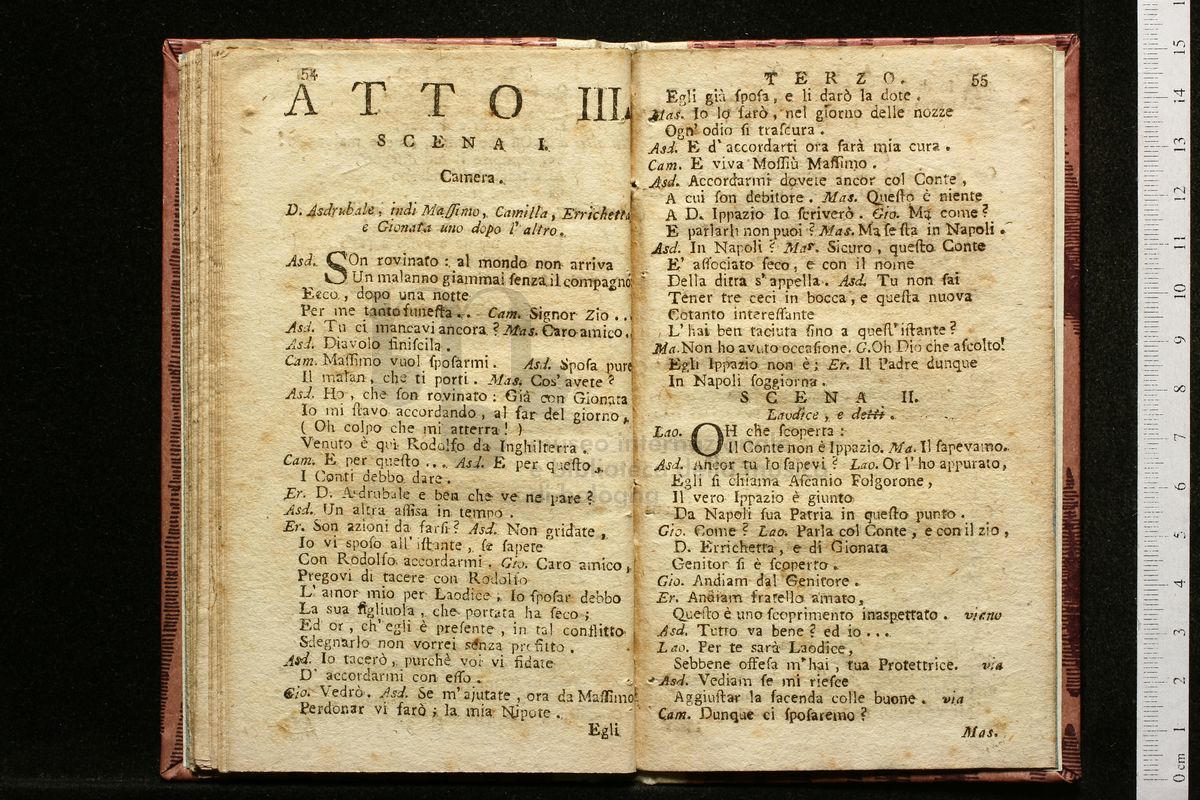 54
ATTO III.
SCENA I.
Camera.
D. Asdrubale, indi Maſſimo, Camilla, Errichetta
e Gionata uno dopo l'altro.
Asd. SOn rovinato: al mondo non arriva
Un malanno giammai ſenza il compagno
Ecco, dopo una notte
Per me tanto funeſta.. Cam. Signor Zio..
Asd. Tu ci mancavi ancora? Mas. Caro amico.
Asd. Diavolo finiſcila.
Cam. Maſſimo vuol ſpoſarmi. Asd. Spoſa pure
Il malan, che ti porti. Mas. Cos' avete?
Asd. Ho, che ſon rovinato: Già con Gionata
Io mi ſtavo accordando, al far del giorno,
(Oh colpo che mi atterra!)
Venuto è quì Rodolfo da Inghilterra.
Cam. E per queſto... Asd. E per queſto,
I Conti debbo dare.
Er. D. Asdrubale e ben che ve ne pare?
Asd. Un altra aſſisa in tempo.
Er. Son azioni da farſi? Asd. Non gridate,
Io vi ſpoſo all' iſtante, ſe ſapete
Con Rodolfo accordarmi. Gio. Caro amico,
Pregovi di tacere con Rodolfo
L' amor mio per Laodice, Io ſpoſar debbo
La sua figliuola, che portata ha ſeco;
Ed or, ch' egli è preſente, in tal conflitto
Sdegnarlo non vorrei senza profitto.
Asd. Io tacerò, purchè voi vi fidate
D' accordarmi con eſſo.
Gio. Vedrò. Asd. Se m' ajutate, ora da Maſſimo
Perdonar vi farò; la mia Nipote.
Egli
TERZO. 55
Egli già ſpoſa, e li darò la dote.
Mas. Io lo farò, nel giorno delle nozze
Ogn' odio ſi traſcura.
Asd. E d' accordarti ora ſarà mia cura.
Cam. E viva Moſſiù Maſſimo.
Asd. Accordarmi dovete ancor col Conte,
A cui ſon debitore. Mas. Queſto è niente
A D. Ippazio Io ſcriverò. Gio. Ma come?
E parlarli non puoi? Mas. Ma ſe ſta in Napoli.
Asd. In Napoli? Mas. Sicuro, queſto Conte
E' aſſociato ſeco, e con il nome
Della ditta s' appella. Asd. Tu non ſai
Tener tre ceci in bocca, e queſta nuova
Cotanto intereſſante
L' hai ben taciuta ſino a queſt' iſtante?
Ma. Non ho avuto occaſione. G. Oh Dio che aſcolto!
Egli Ippazio non è; Er. Il Padre dunque
In Napoli ſoggiorna.
SCENA II.
Laodice, e detti.
Lao. OH che ſcoperta:
Il Conte non è Ippazio. Ma. Il ſapevamo.
Asd. Ancor tu lo ſapevi? Lao. Or l' ho appurato,
Egli ſi chiama Aſcanio Folgorone,
Il vero Ippazio è giunto
Da Napoli ſua Patria in queſto punto.
Gio. Come? Lao. Parla col Conte, e con il zio,
D. Errichetta, e di Gionata
Genitor ſi è ſcoperto.
Gio. Andiam dal Genitore.
Er. Andiam fratello amato,
Queſto è uno ſcoprimento inaspettato. viano
Asd. Tutto va bene? ed io...
Lao. Per te sarà Laodice,
Sebbene offeſa m' hai, tua Protettrice. via
Asd. Vediam ſe mi rieſce
Aggiuſtar la facenda colle buone. via
Cam. Dunque ci ſpoſaremo?
Mas.